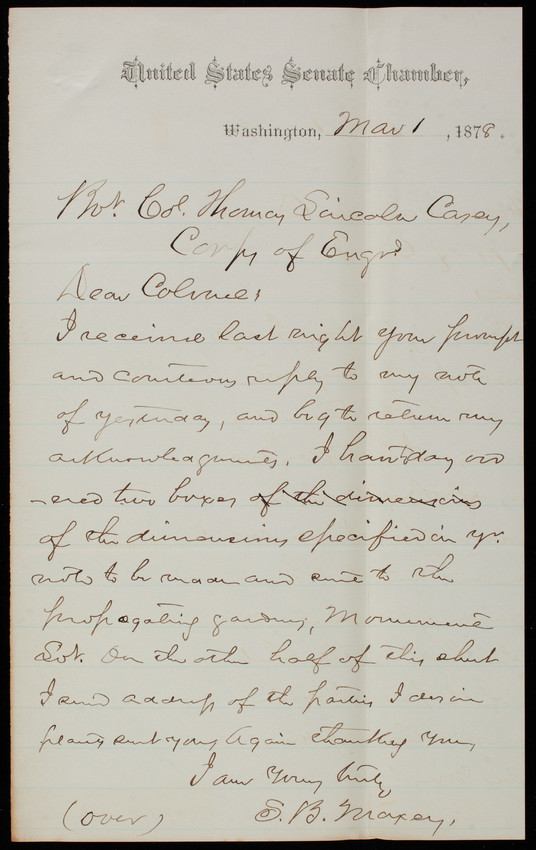 United States Senate Chamber,
Washington, Mar 1, 1878.
Bvt. Col. Thomas Lincoln Casey,
Corps of Engrs
Dear Colonel;
I received last night your prompt
and courteous reply to my note
of yesterday, and beg to return my
acknowledgments. I have today ord
-ered two boxes of the dimensions
of the dimensions specified in yr.
note to be made and sent to the
propagating gardens, Monument
Lot. On the other half of this sheet
I send address of the parties I desire
plants sent to, Again thanking you,
I am Yours truly,
(over) S. B. Maxey.